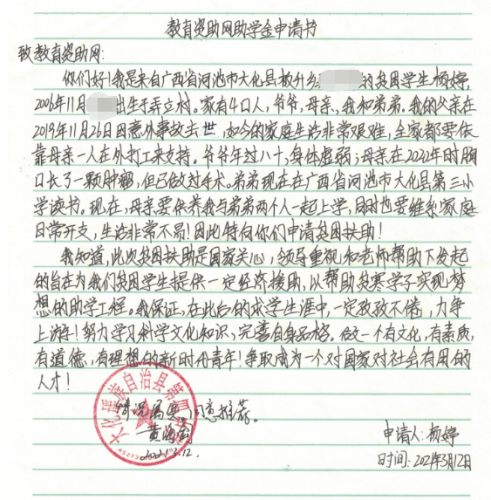 教育资助网助学金申请书
致教育资助网：
你们好！我是来自广西省河池市大化县板升乡 的贫困学生杨婷，
2006年11月 出生于弄乡村。家有4口人，爷爷，母亲、我和弟弟。我的父亲在
2019年11月26日因意外事故去世，如今的家庭生活非常艰难，全家都要依
靠母亲一人在外打工来支持。爷爷年过八十，身体虚弱；母亲在2022年时胸
口长了一颗肿瘤，但已做过手术。弟弟现在在广西省河池市大化县第三小
学读书。现在，母亲要供养我与弟弟两个人一起上学，同时也要维系家庭
日常开支，生活非常不易！因此特向你们申请贫困扶助！
我知道，此次贫困扶助是国家关心，领导重视和老师帮助下发起
的旨在为我们贫困学生提供一定经济援助，以帮助贫寒学子实现梦
想的助学工程。我保证，在此后的求学生涯中，一定孜孜不倦，力争
上游！努力学习科学文化知识，完善自身品格。做一个有文化，有素质，
有道德，有理想的新时代青年！争取成为一个对国家对社会有用的
人才！
大化瑶族自治县第
情况属实，同意推荐。
申请人：杨婷
日期：2021年3月12日